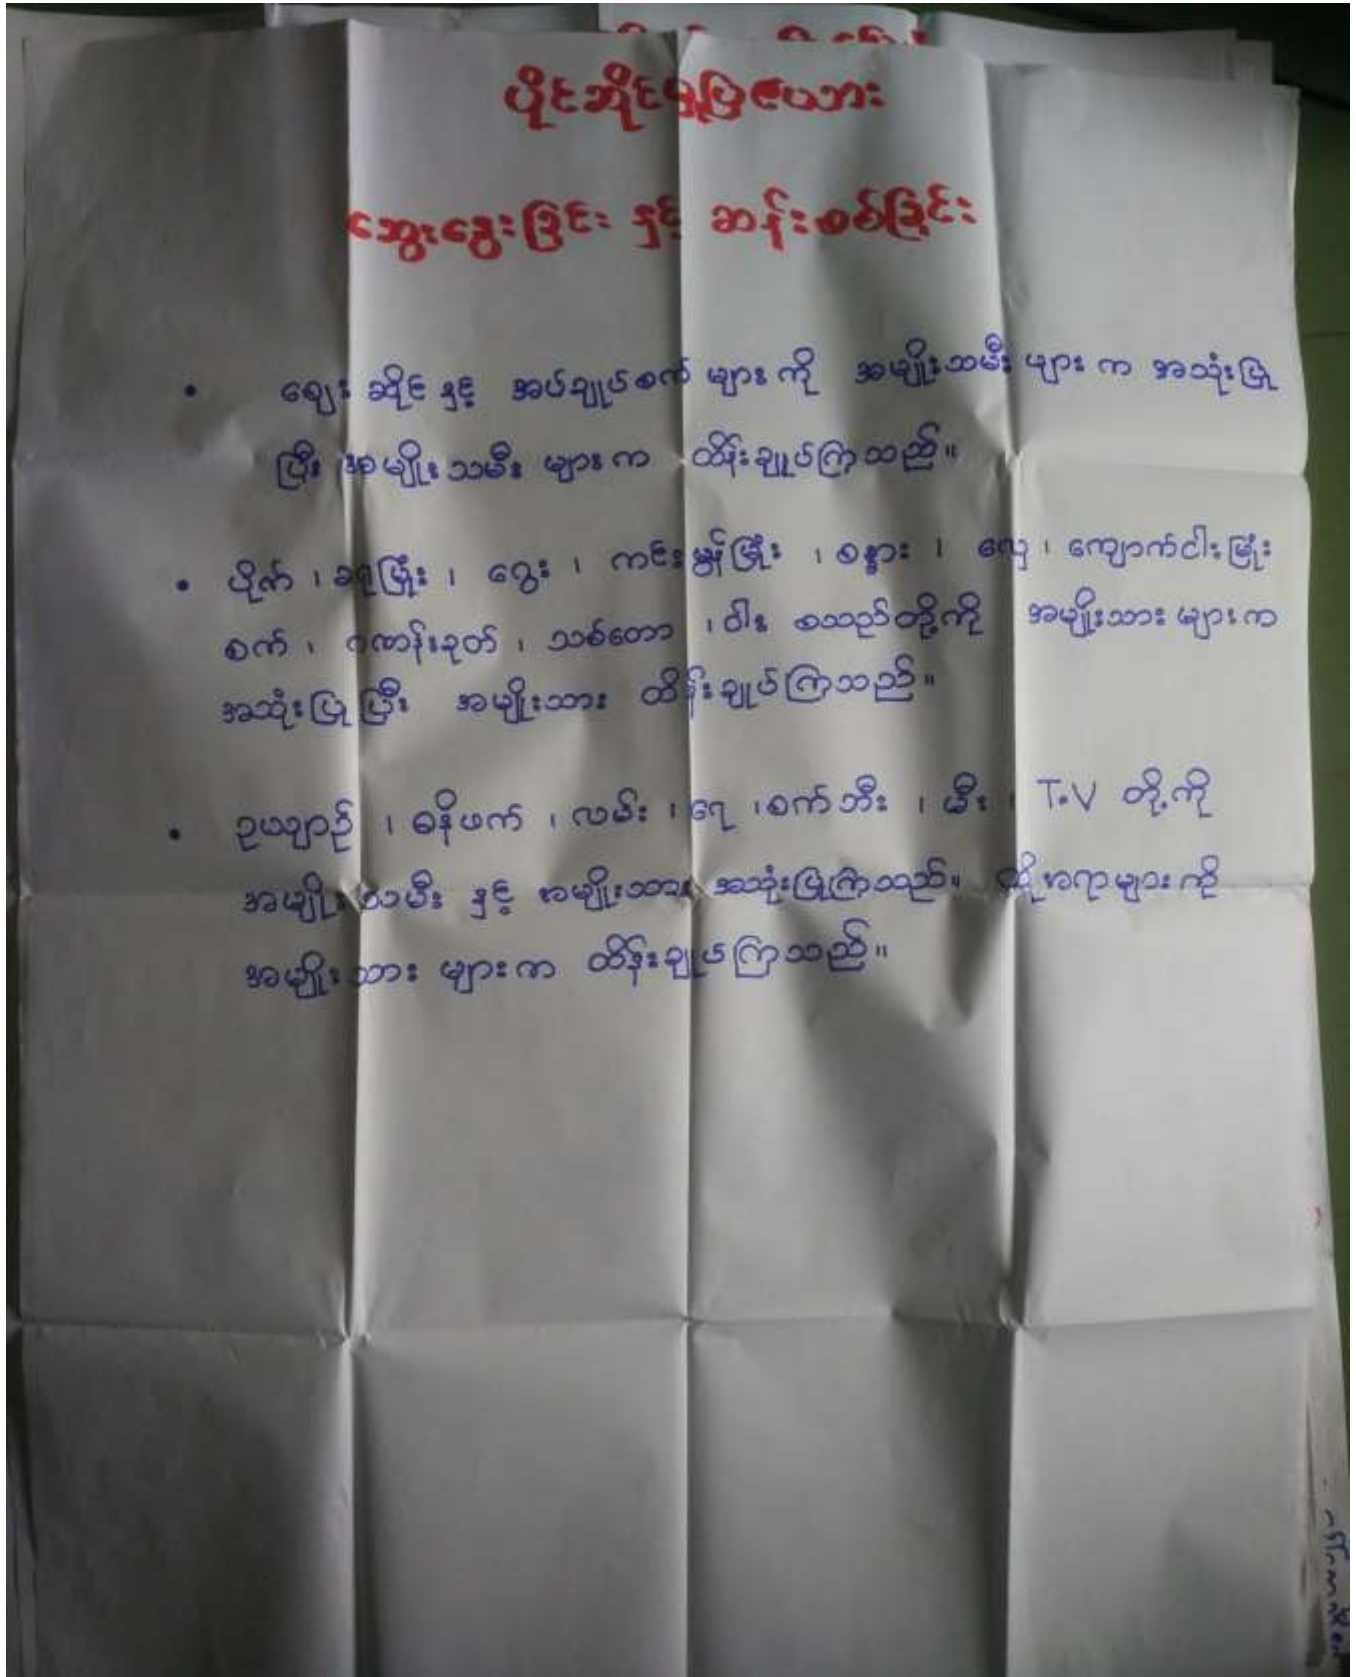 ပိုင်ဆိုင်မှုပြဇယား
ဆွေးနွေးခြင်း နှင့် ဆန်းစစ်ခြင်း
• ဈေးဆိုင် နှင့် အပ်ချုပ်စက် များကို အမျိုးသမီး များ က အသုံးပြု
ပြီး အမျိုးသမီး များက ထိန်းချုပ်ကြသည်။
• ပိုက် ၊ ခရုမြုံး ၊ ၊ ကင်းမွန်မြုံး ၊ ၊ လှေ ၊ ကျောက်ငါးမြုံး
စက် ၊ ဂဏန်းခုတ် ၊ သစ်တော ၊ ဝါး စသည်တို့ကို အမျိုးသား များက
အသုံးပြုပြီး အမျိုးသား ထိန်းချုပ်ကြသည်။
• ဥယျာဉ် ၊ ဓနိဖက် ၊ လမ်း ၊ ရေ ၊ စက်ဘီး ၊ မီး ၊ T.V တို့ကို
အမျိုးသမီး နှင့် အမျိုးသား အသုံးပြုကြသည်။ ထိုအရာများကို
အမျိုးသား များက ထိန်းချုပ်ကြသည်။